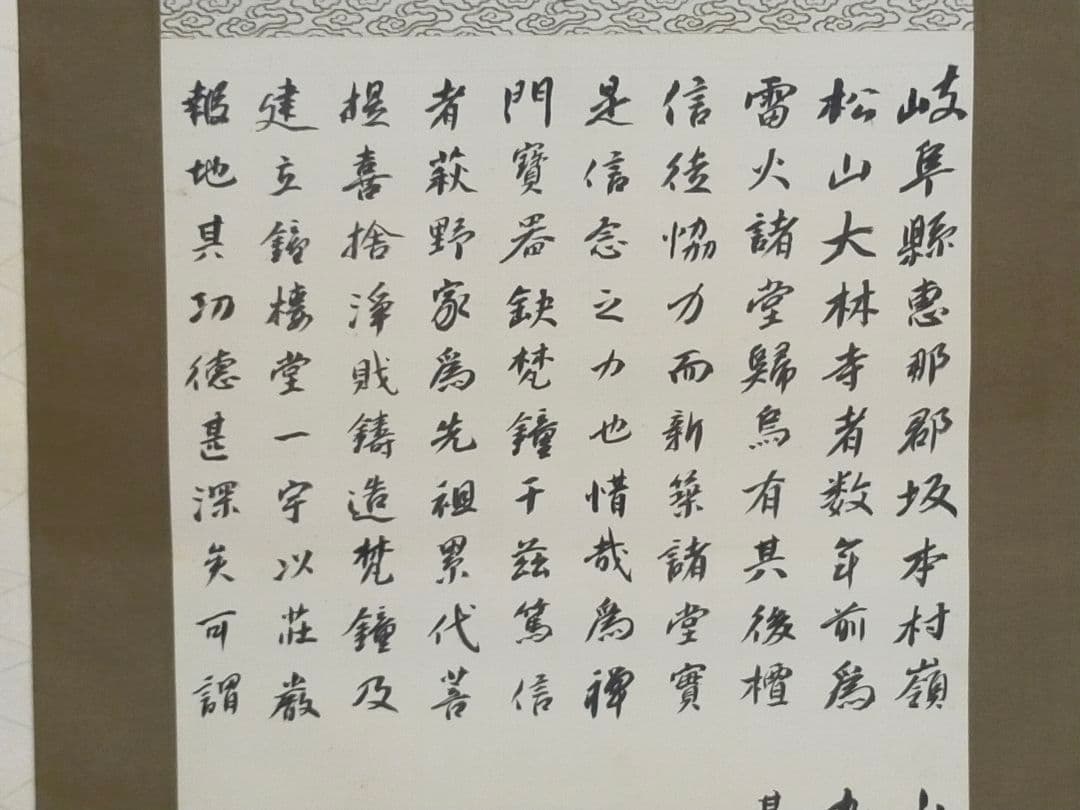 岐阜縣惠那郡坂本村嶺
松山大林寺者数年前為
雷火諸堂歸烏有其後檀
信徒協力而新築諸堂實
是信念之力也惜哉為禅
門寶器缺梵鐘于茲篤信
者萩野家為先祖累代菩
提喜捨淨財鑄造梵鐘及
建立鐘楼堂一宇以莊嚴
報地其功德甚深矣可謂